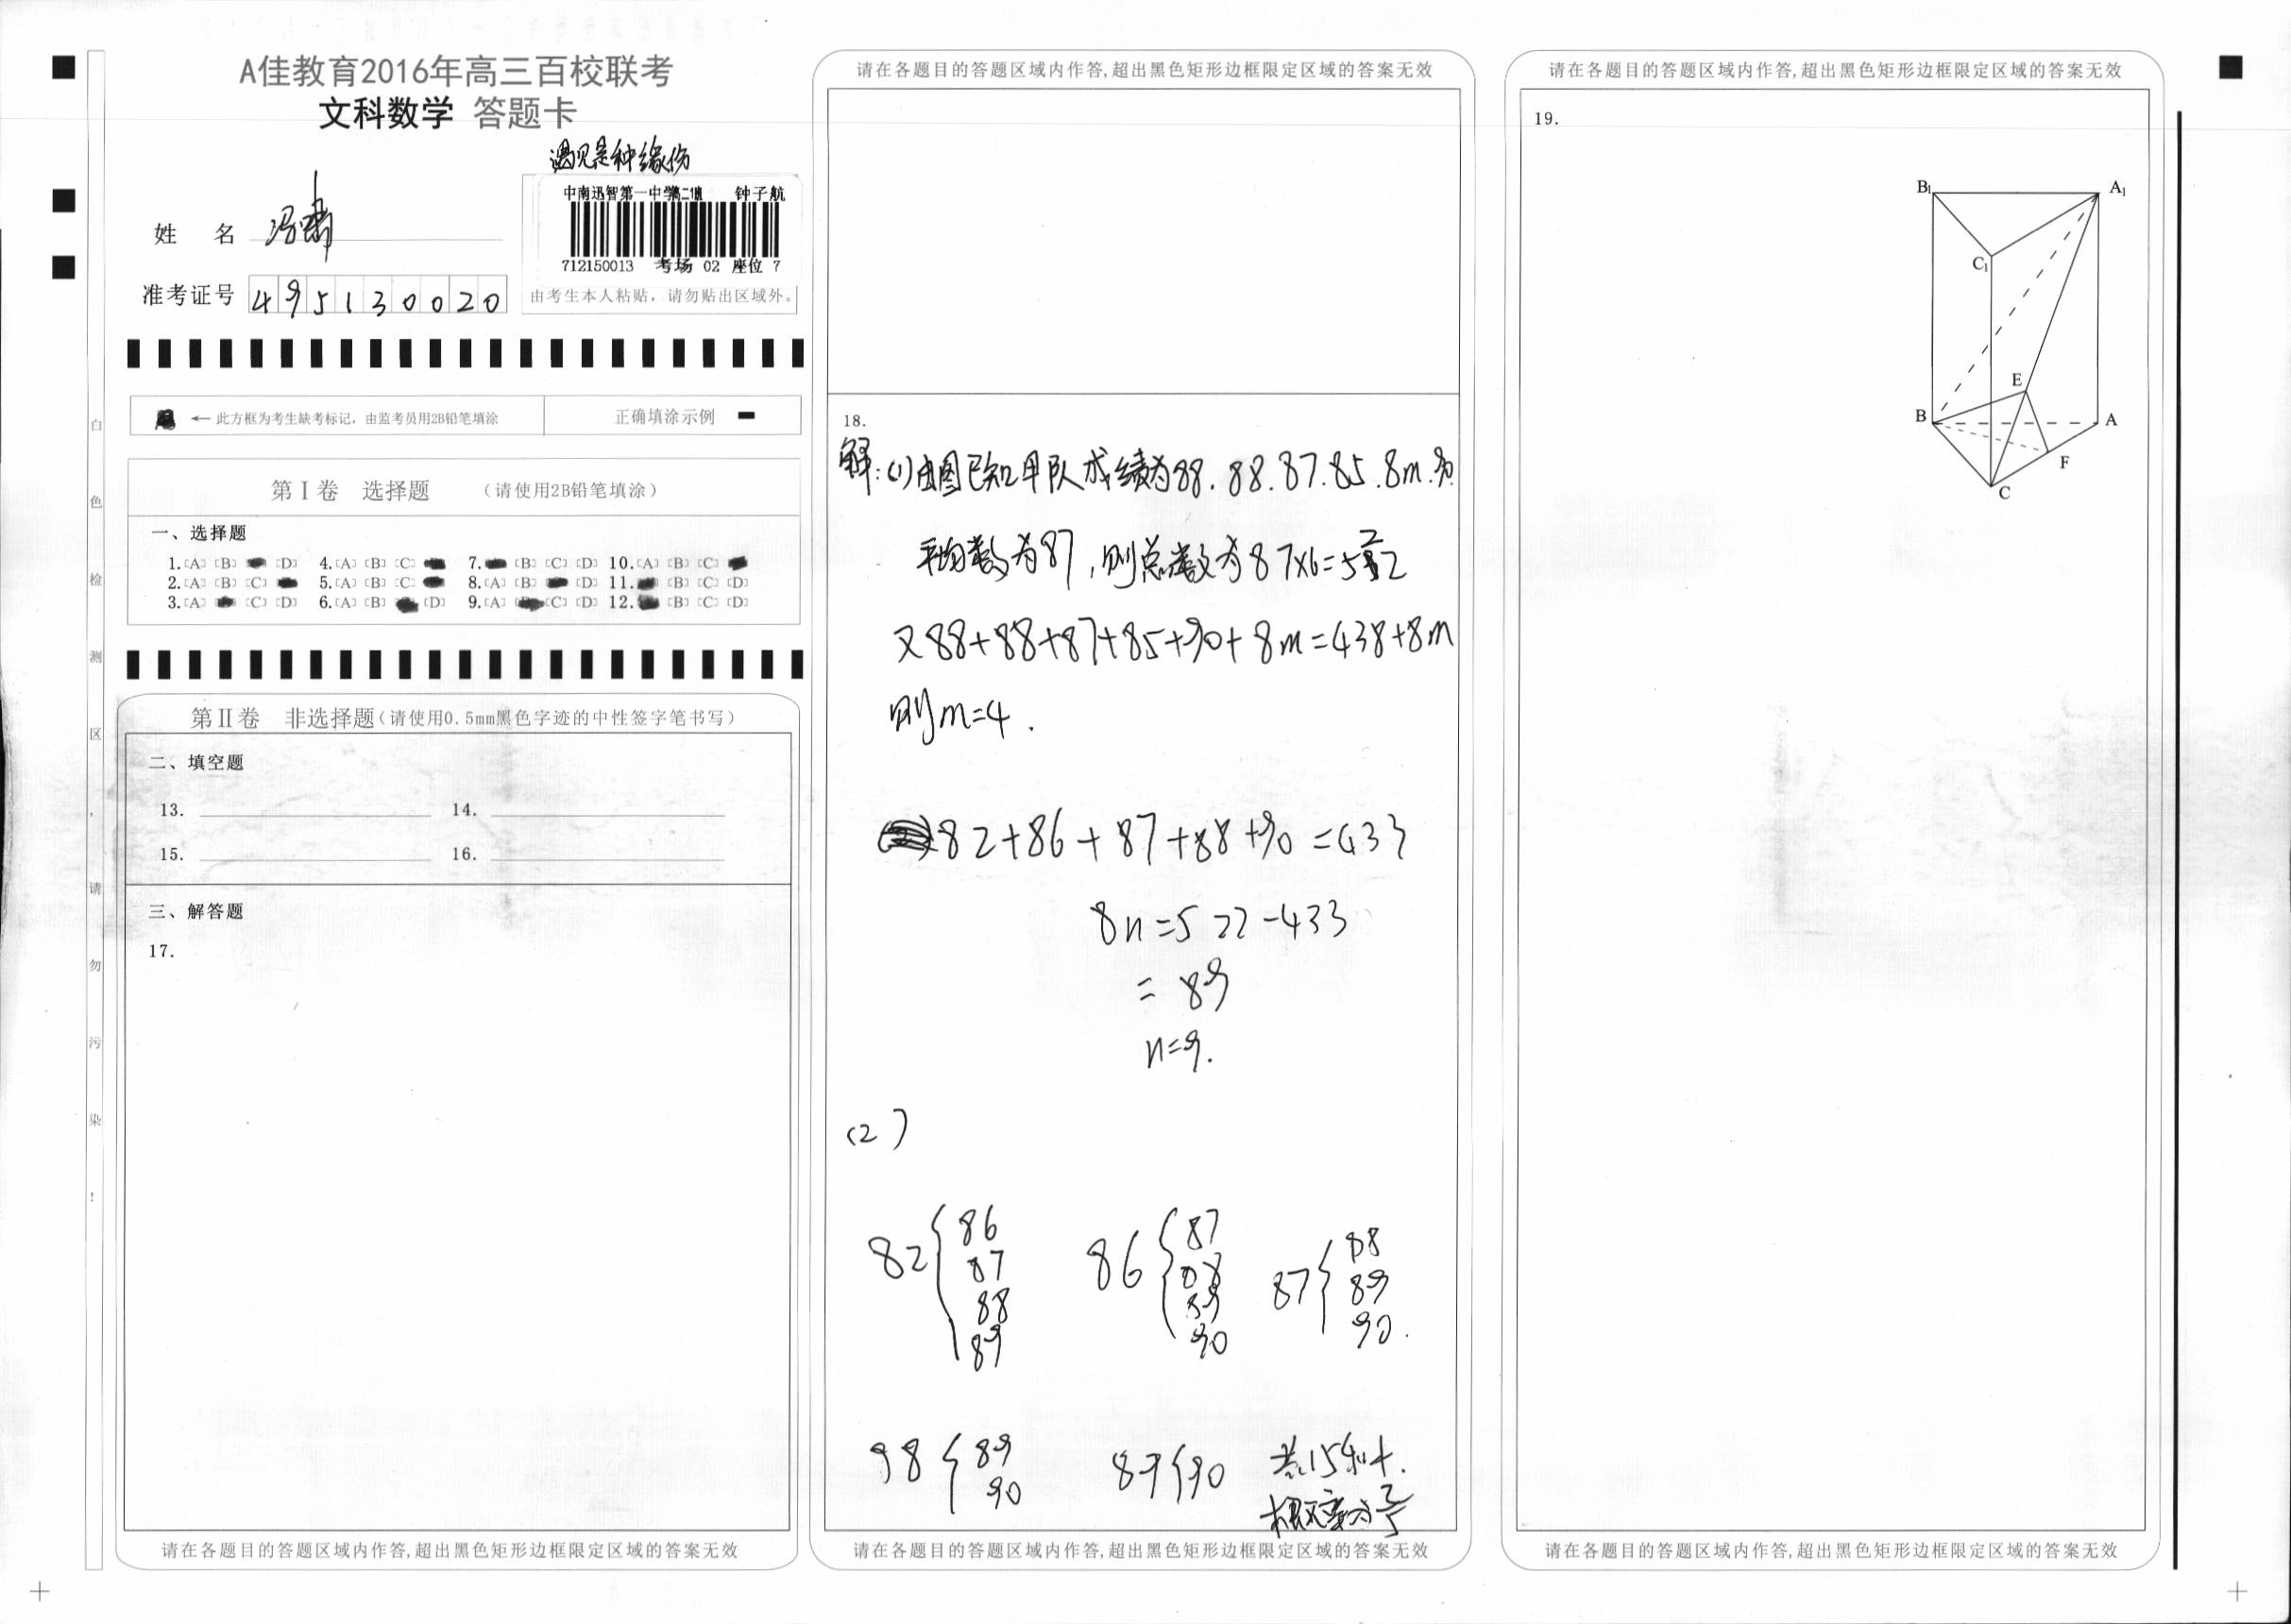 A佳教育2016年高三百校联考
文科数学 答题卡
遇见是种缘份
中南迅智第一中学 钟子航
712150013 考场 02 座位 7
由考生本人粘贴，请勿贴出区域外。
姓 名
准考证号 495130020
←此方框为考生缺考标记，由监考员用2B铅笔填涂
正确填涂示例
第Ⅰ卷 选择题 （请使用2B铅笔填涂）
一、选择题
1.[A] [B] [D] 4.[A] [B] [C] 7. [B] [C] [D] 10.[A] [B] [C]
2.[A] [B] [C] 5.[A] [B] [C] 8.[A] [B] [D] 11. [B] [C] [D]
3.[A] [C] [D] 6.[A] [B] [D] 9.[A] [C] [D] 12. [B] [C] [D]
第Ⅱ卷 非选择题(请使用0.5mm黑色字迹的中性签字笔书写)
二、填空题
13.
14.
15.
16.
三、解答题
17.
请在各题目的答题区域内作答,超出黑色矩形边框限定区域的答案无效
白色检测区，请勿污染！
请在各题目的答题区域内作答,超出黑色矩形边框限定区域的答案无效
18.
解:(1)由图已知甲队成绩为88.88.87.85.8m.90
平均数为87,则总数为87×6=522
又88+88+87+85+90+8m=438+8m
则m=4.
82+86+87+88+90=433
8n=522-433
=89
n=9.
(2)
82{86
87
88
89
86{87
88
89
90
87{88
89
90.
98{89
90
89{90
共15种.
概率为2/5
请在各题目的答题区域内作答,超出黑色矩形边框限定区域的答案无效
请在各题目的答题区域内作答,超出黑色矩形边框限定区域的答案无效
19.
B1
A1
C1
E
B
A
F
C
请在各题目的答题区域内作答,超出黑色矩形边框限定区域的答案无效